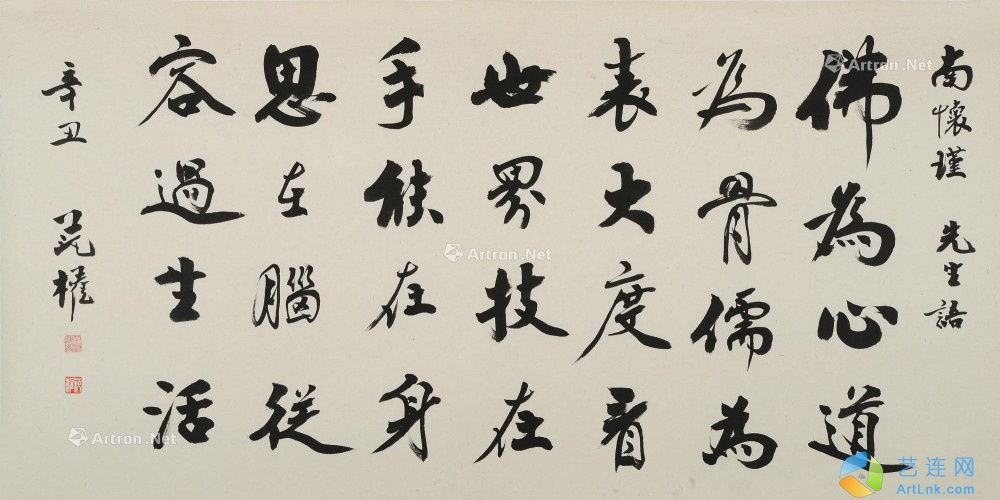 南懷瑾 先生語
佛為心道
為骨儒為
表大度看
世界技在
手能在身
思在腦從
容過生活
辛丑
Artron.Net
Artron.Net
Artron.Net
Artron.Net
Artron.Net
艺连网
ArtLnk.com